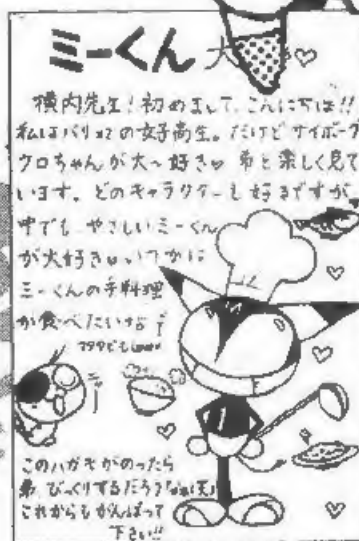 ミーくん大
横内先生!初めまして、こんにちは!!
私はバリバリの女子高生。だけどサイボーグ
クロちゃんが大〜好き♡弟と楽しく見て
います。どのキャラクターも好きですが、
中でも、やさしいミーくん
が大好き♡いつかは
ミーくんの手料理
が食べたいなー
ニャー
このハガキがのったら
弟、びっくりするだろうなぁ(笑)
これからもがんばって
下さい!!